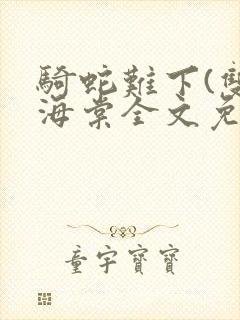 騎蛇難下(雙
海棠全文免
童宇寶寶